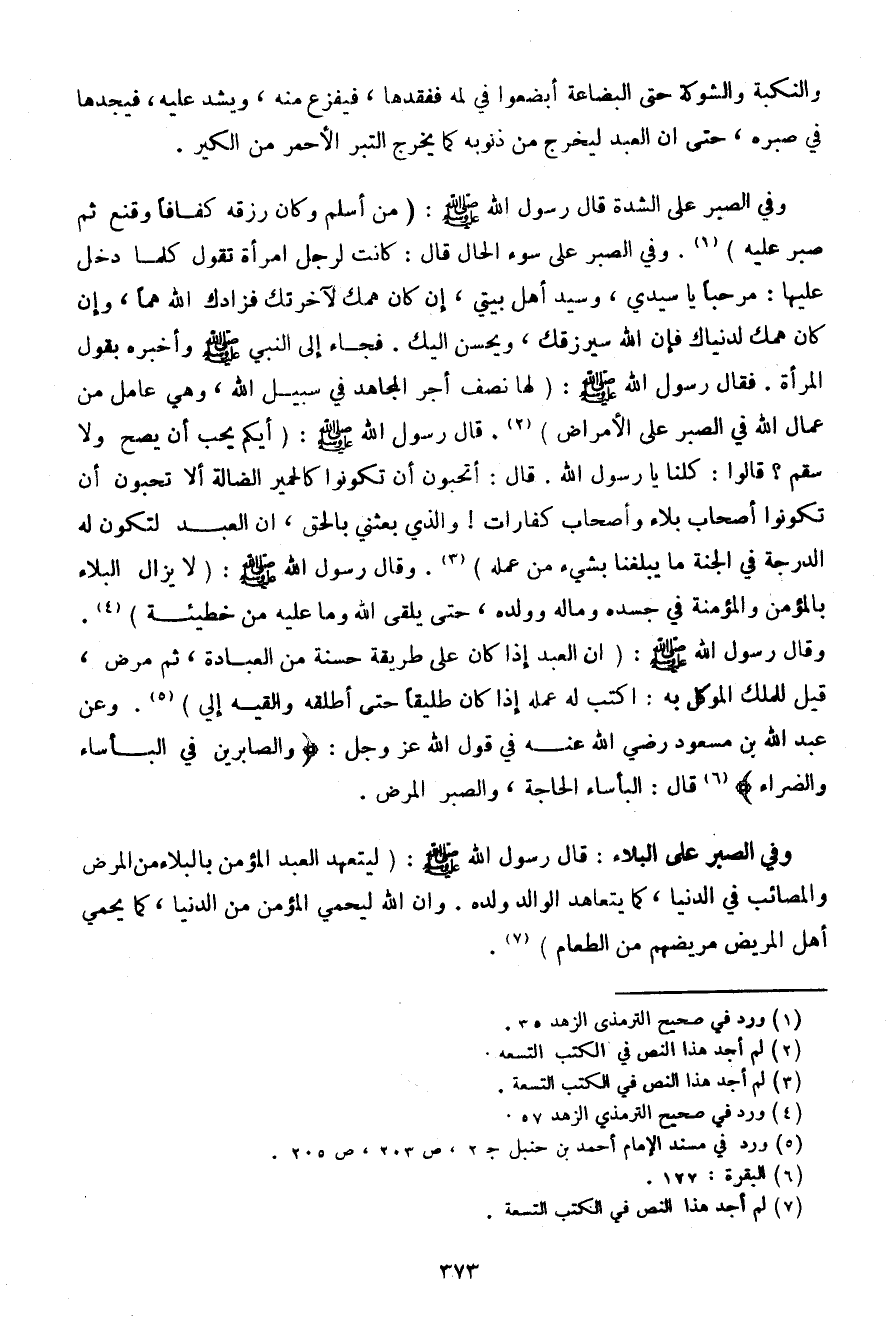 والنكبة والشوكة حتى البضاعة أبضعوا في لمه ففقدها ، فيفزع منه ، ويشد عليه ، فيجدها
في صبره ، حتى ان العبد ليخرج من ذنوبه كما يخرج التبر الأحمر من الكير .
وفي الصبر على الشدة قال رسول الله ﷺ : ( من أسلم وكان رزقه كفـافاً وقنع ثم
صبر عليه ) (١) . وفي الصبر على سوء الحال قال : كانت لرجل امرأة تقول كلمـا دخل
عليها : مرحباً يا سيدي ، وسيد أهل بيتي ، إن كان همك لآخرتك فزادك الله هماً ، وإن
كان همك لدنياك فإن الله سيرزقك ، ويحسن اليك . فجـاء إلى النبي ﷺ وأخبره بقول
المرأة . فقال رسول الله ﷺ : ( لها نصف أجر المجاهد في سبيـل الله ، وهي عامل من
عمال الله في الصبر على الأمراض ) (٢) . قال رسول الله ﷺ : ( أيكم يحب أن يصح ولا
سقم ؟ قالوا : كلنا يا رسول الله . قال : أتحبون أن تكونوا كالحمير الضالة ألا تحبون أن
تكونوا أصحاب بلاء وأصحاب كفارات ! والذي بعثني بالحق ، ان العبـد لتكون له
الدرجة في الجنة ما يبلغنا بشيء من عمله ) (٣) . وقال رسول الله ﷺ : ( لا يزال البلاء
بالمؤمن والمؤمنة في جسده وماله وولده ، حتى يلقى الله وما عليه من خطيئـة ) (٤) .
وقال رسول الله ﷺ : ( ان العبد إذا كان على طريقة حسنة من العبـادة ، ثم مرض ،
قيل للملك الموكل به : اكتب له عمله إذا كان طليقاً حتى أطلقه والقيـه إلي ) (٥) . وعن
عبد الله بن مسعود رضي الله عنـه في قول الله عز وجل : ﴿ والصابرين في البـأساء
والضراء ﴾ (٦) قال : البأساء الحاجة ، والصبر المرض .
وفي الصبر على البلاء : قال رسول الله ﷺ : ( ليتعهد العبد المؤمن بالبلاء من المرض
والمصائب في الدنيا ، كما يتعاهد الوالد ولده . وان الله ليحمي المؤمن من الدنيا ، كما يحمي
أهل المريض مريضهم من الطعام ) (٧) .
(١) ورد في صحيح الترمذى الزهد ٣٥ .
(٢) لم أجد هذا النص في الكتب التسعه .
(٣) لم أجد هذا النص في الكتب التسعة .
(٤) ورد في صحيح الترمذي الزهد ٥٧ .
(٥) ورد في مسند الإمام أحمد بن حنبل جـ ٢ ، ص ٢٠٣ ، ص ٢٠٥ .
(٦) البقرة : ١٧٧ .
(٧) لم أجد هذا النص في الكتب التسعة .
٣٧٣